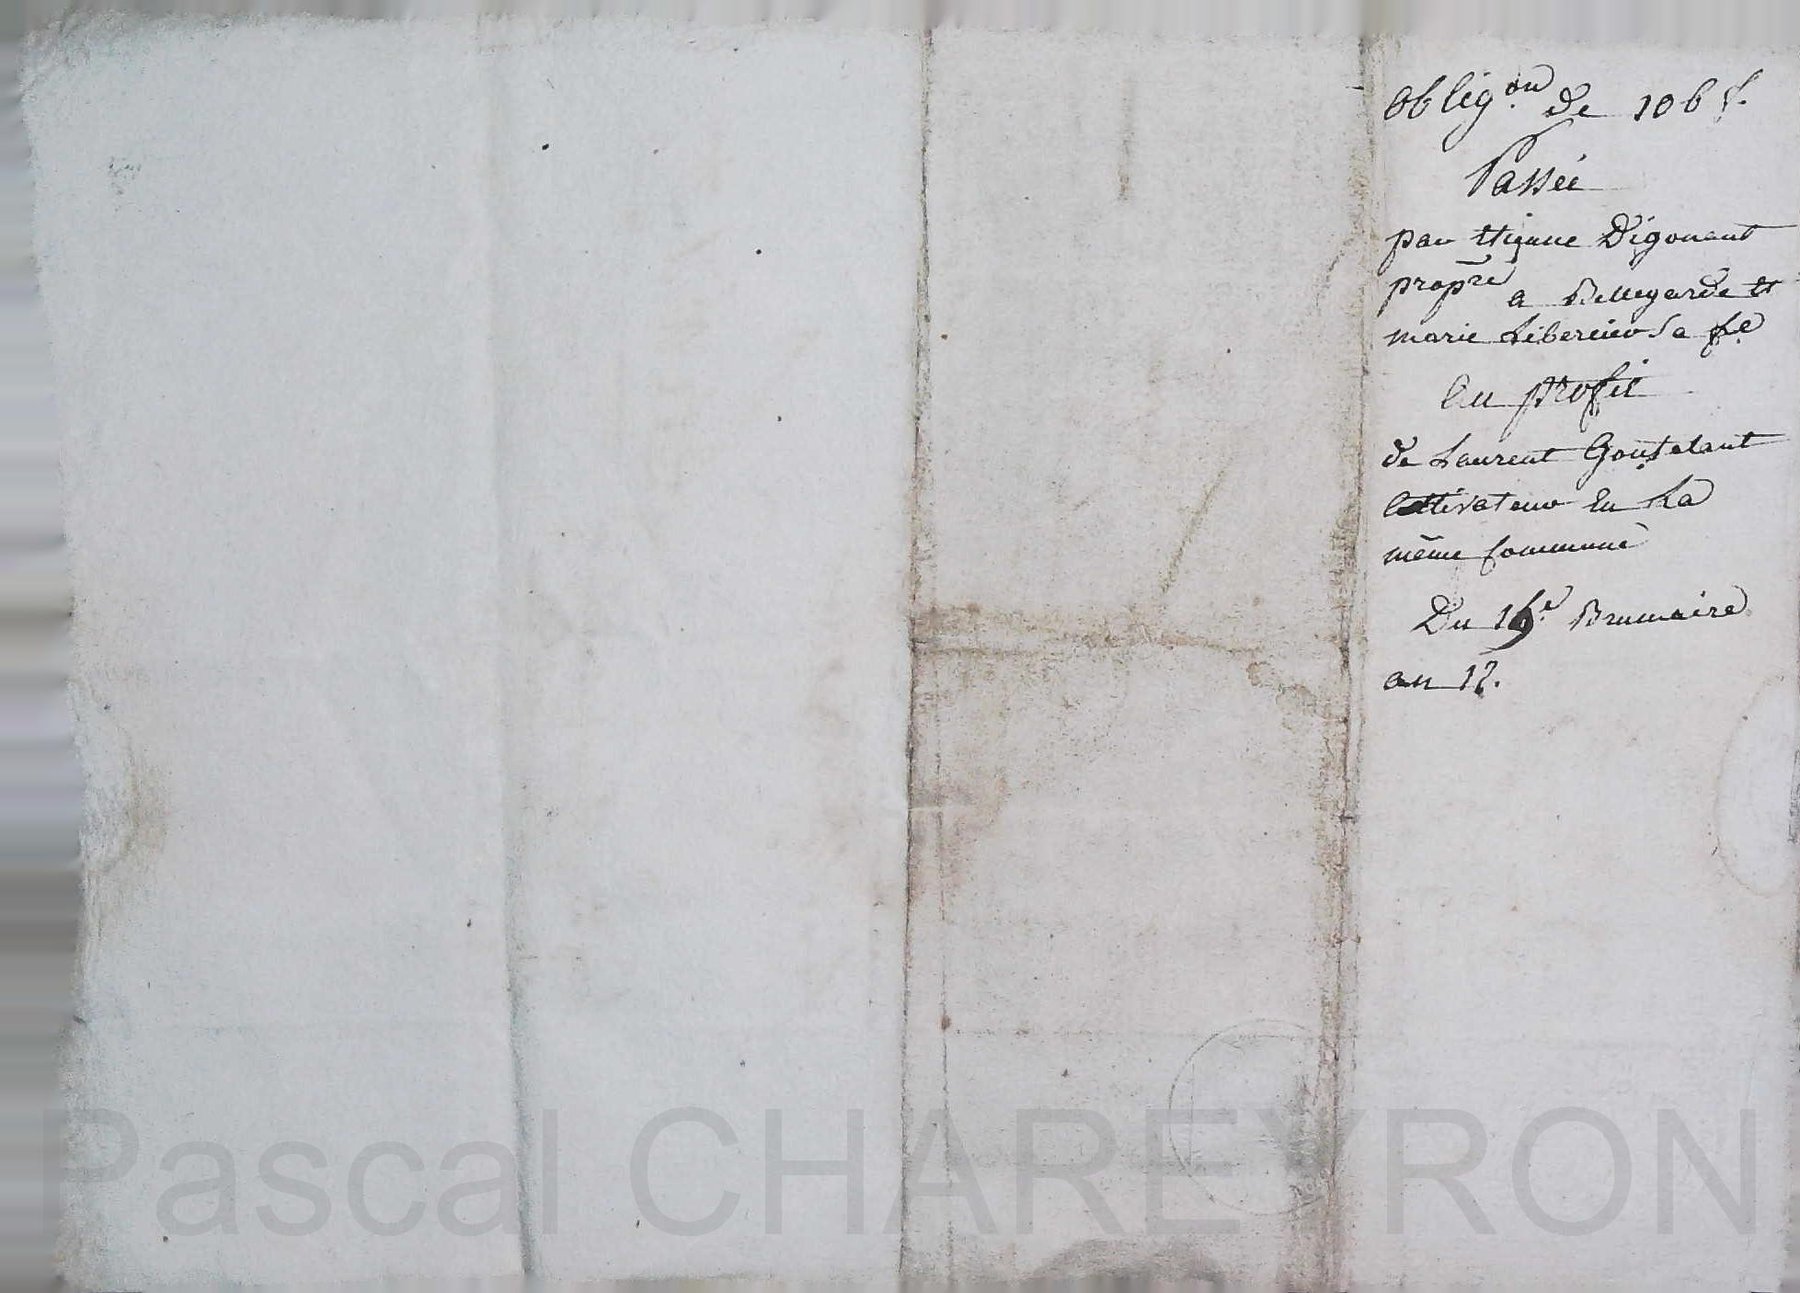 Oblig.on de 106 f.
Passée
par Etienne Digonant
propre a Bellegarde et
marie sa fe
Au profit
de Laurent Goutelant
Cultivateur En La
même Commune
Du 16e Brumaire
an 12.
Pascal CHAREYRON